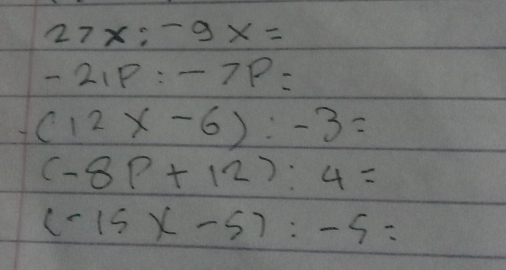 27x:-9x=
-21P:-7P=
(12x-6):-3=
(-8P+12):4=
(-15x-5):-5=